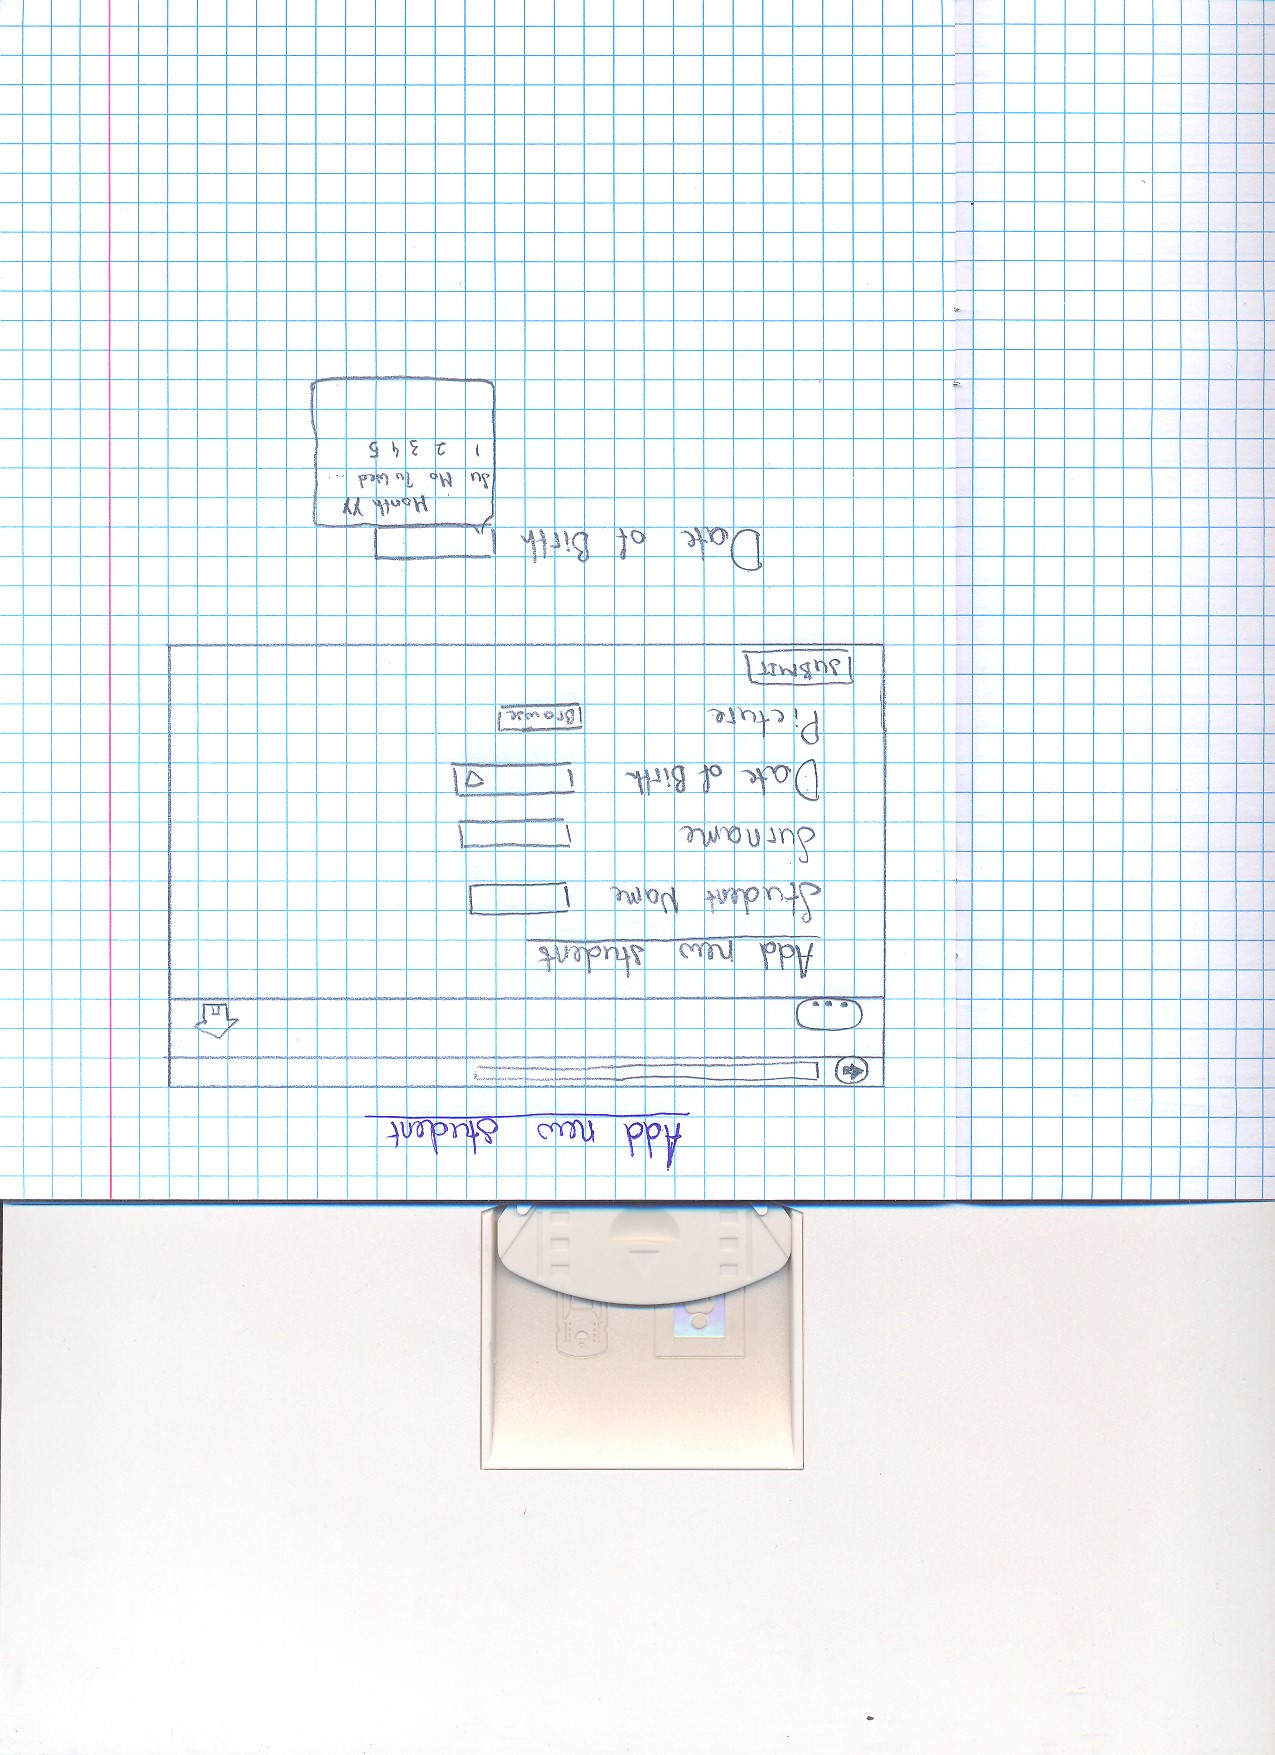 Add new student
Add new student
Student Name
Surname
Date of Birth
Picture Browse
SUBMIT
Date of Birth
Month YY
Su Mo Tu Wed ...
1 2 3 4 5